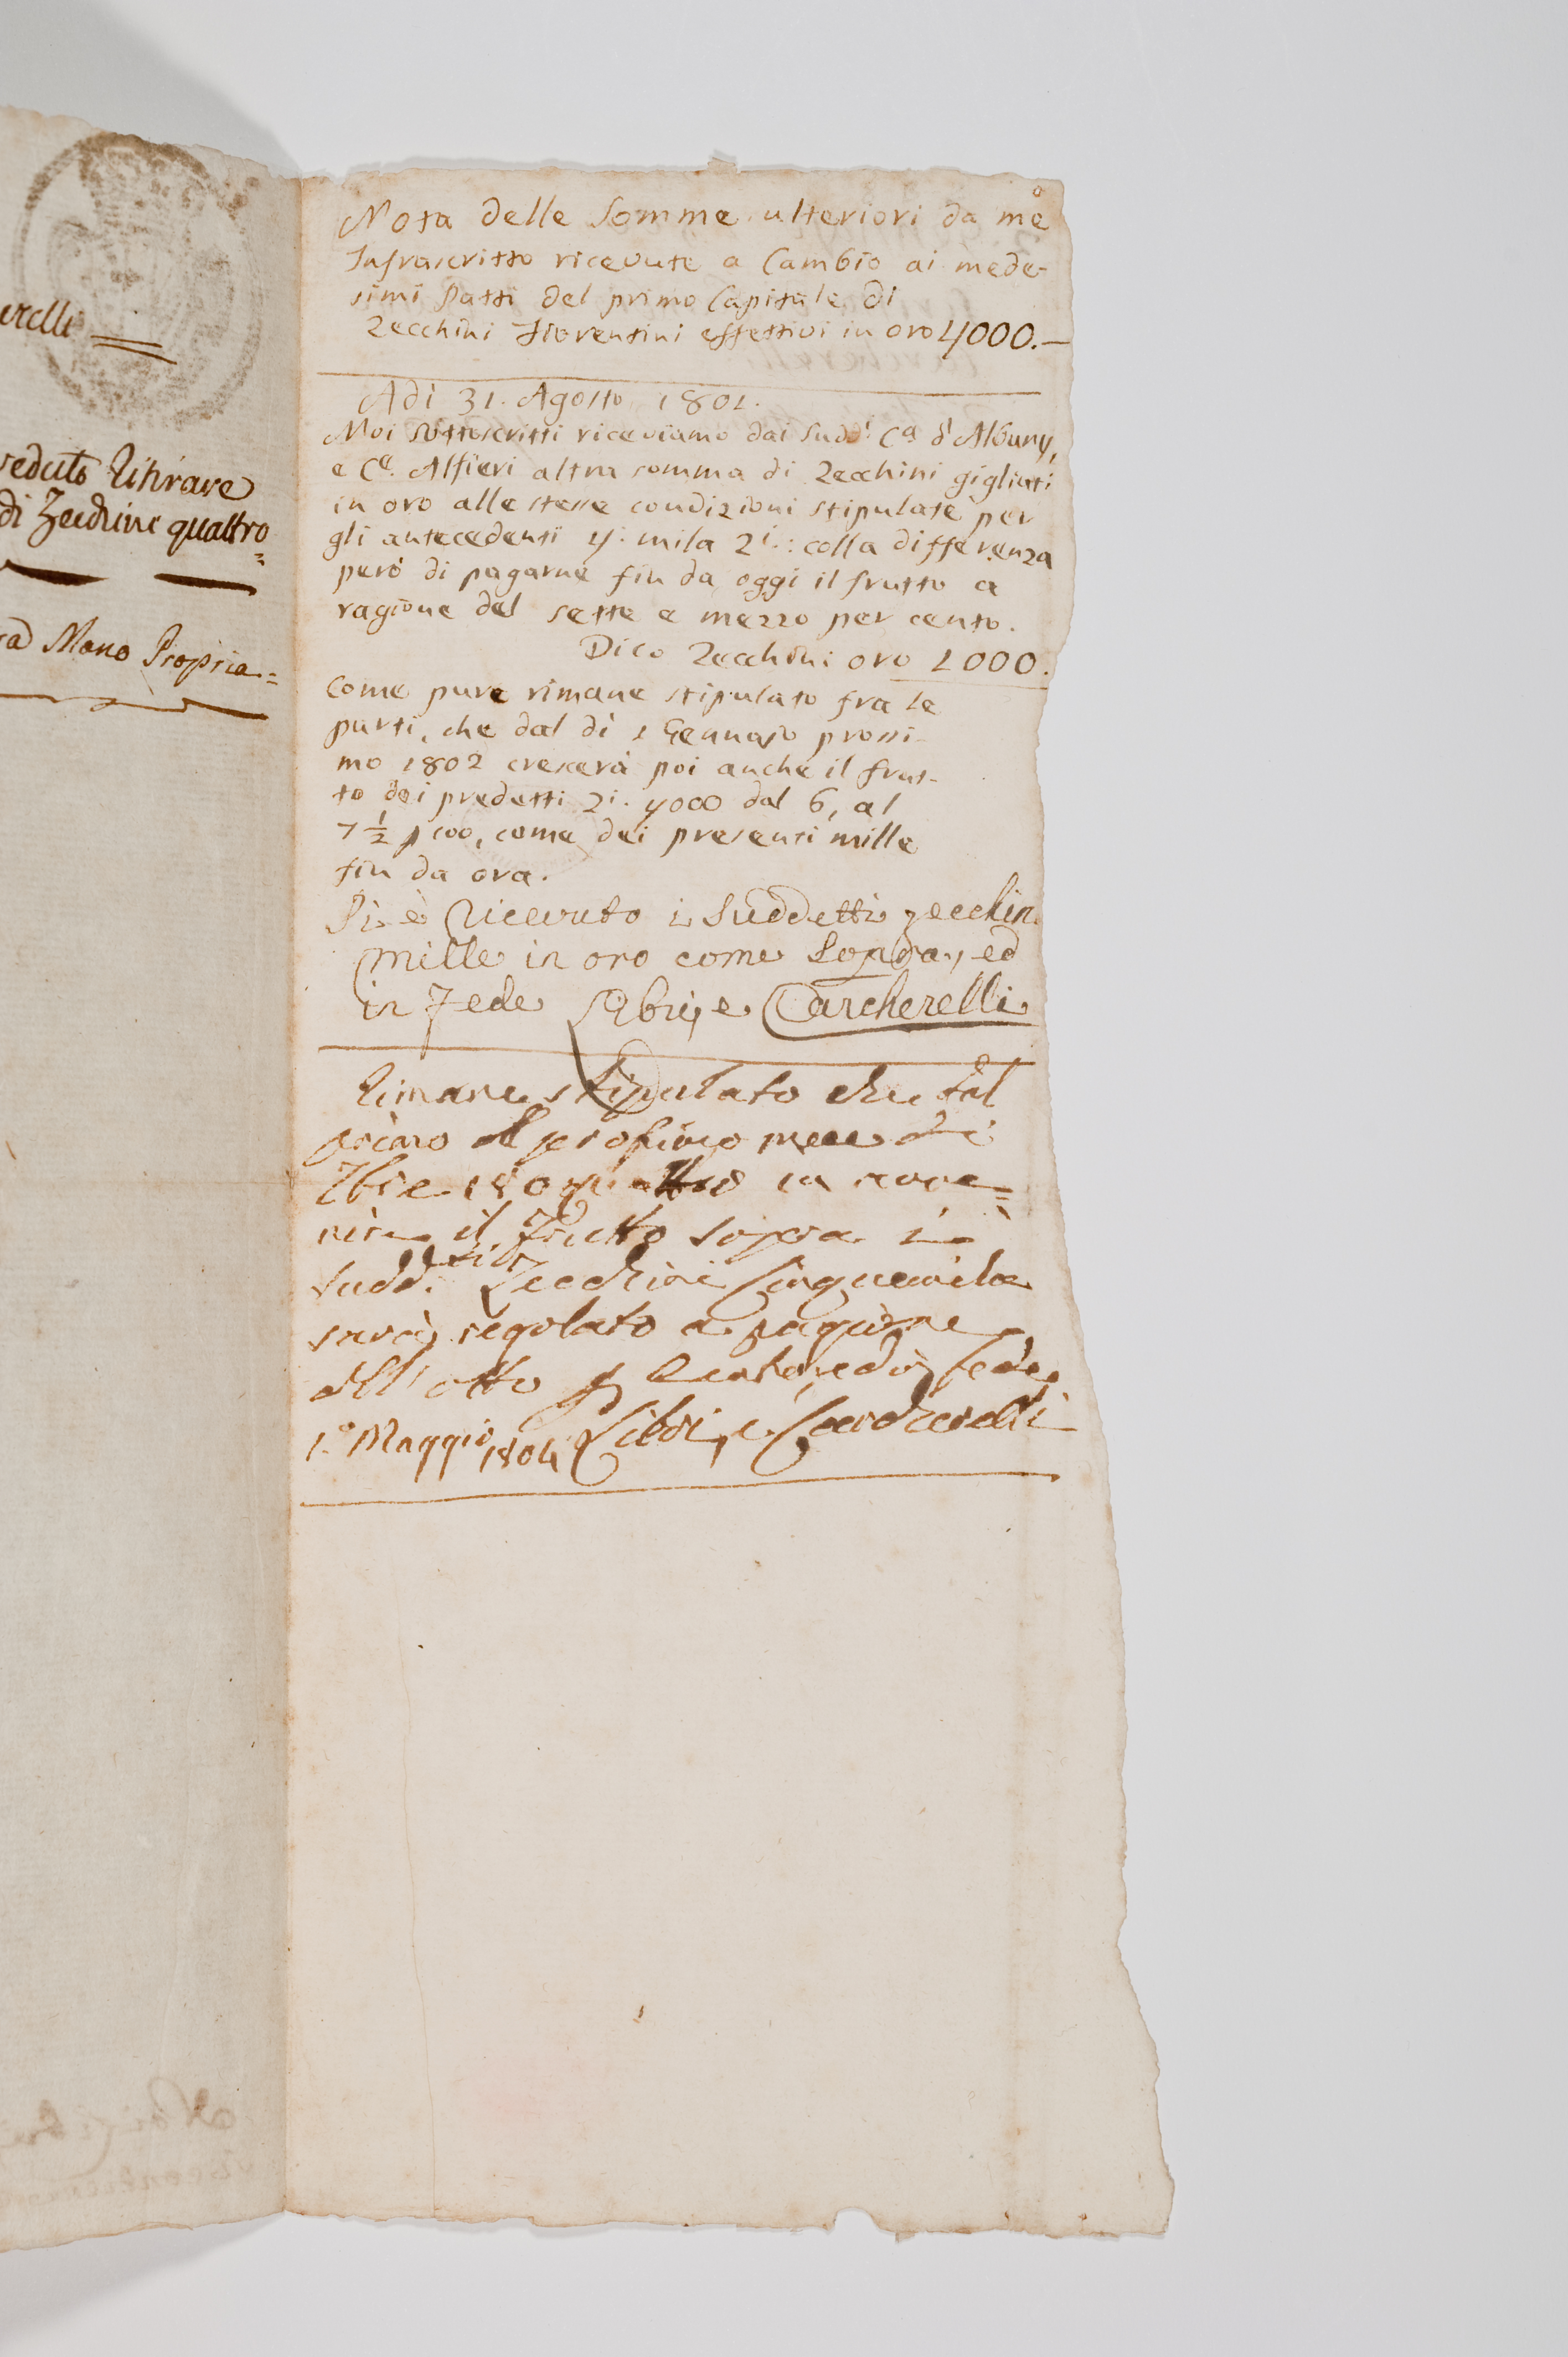 erelli
veduto Ritirare
di Zecchini quattro
Mano Propria
Nota delle Somme ulteriori da me
Infrascritto ricevute a Cambio ai mede-
simi Patti del primo Capitale di
Zecchini Fiorentini effettivi in oro 4000.—
Adì 31. Agosto 1801.
Noi Sottoscritti riceviamo dai Sudd.i C.a d'Albany,
e C.e Alfieri altra somma di Zecchini gigliati
in oro alle stesse condizioni stipulate per
gli antecedenti 4. mila Z.i: colla differenza
però di pagarne fin da oggi il frutto a
ragione del sette e mezzo per cento.
Dico Zecchini oro 1000.
Come pure rimane stipulato fra le
parti, che dal dì 1 Gennajo prossi-
mo 1802 crescerà poi anche il frut-
to dei predetti Zi. 4000 dal 6, al
7 1/2 p 100, come dei presenti mille
fin da ora.
Si è Ricevuto i Suddetti zecchin
Mille in oro come Sopra, ed
in Fede Libri, e Carcherelli
Rimane stipulato che dal
primo del prossimo mese di
in avve=
nire il Frutto sopra i
Sudd.i Zecchini Cinquemila
sarà regolato a ragione
dell'otto p Cento, ed in fede
1.o Maggio 1804 Libri, e Carcherelli